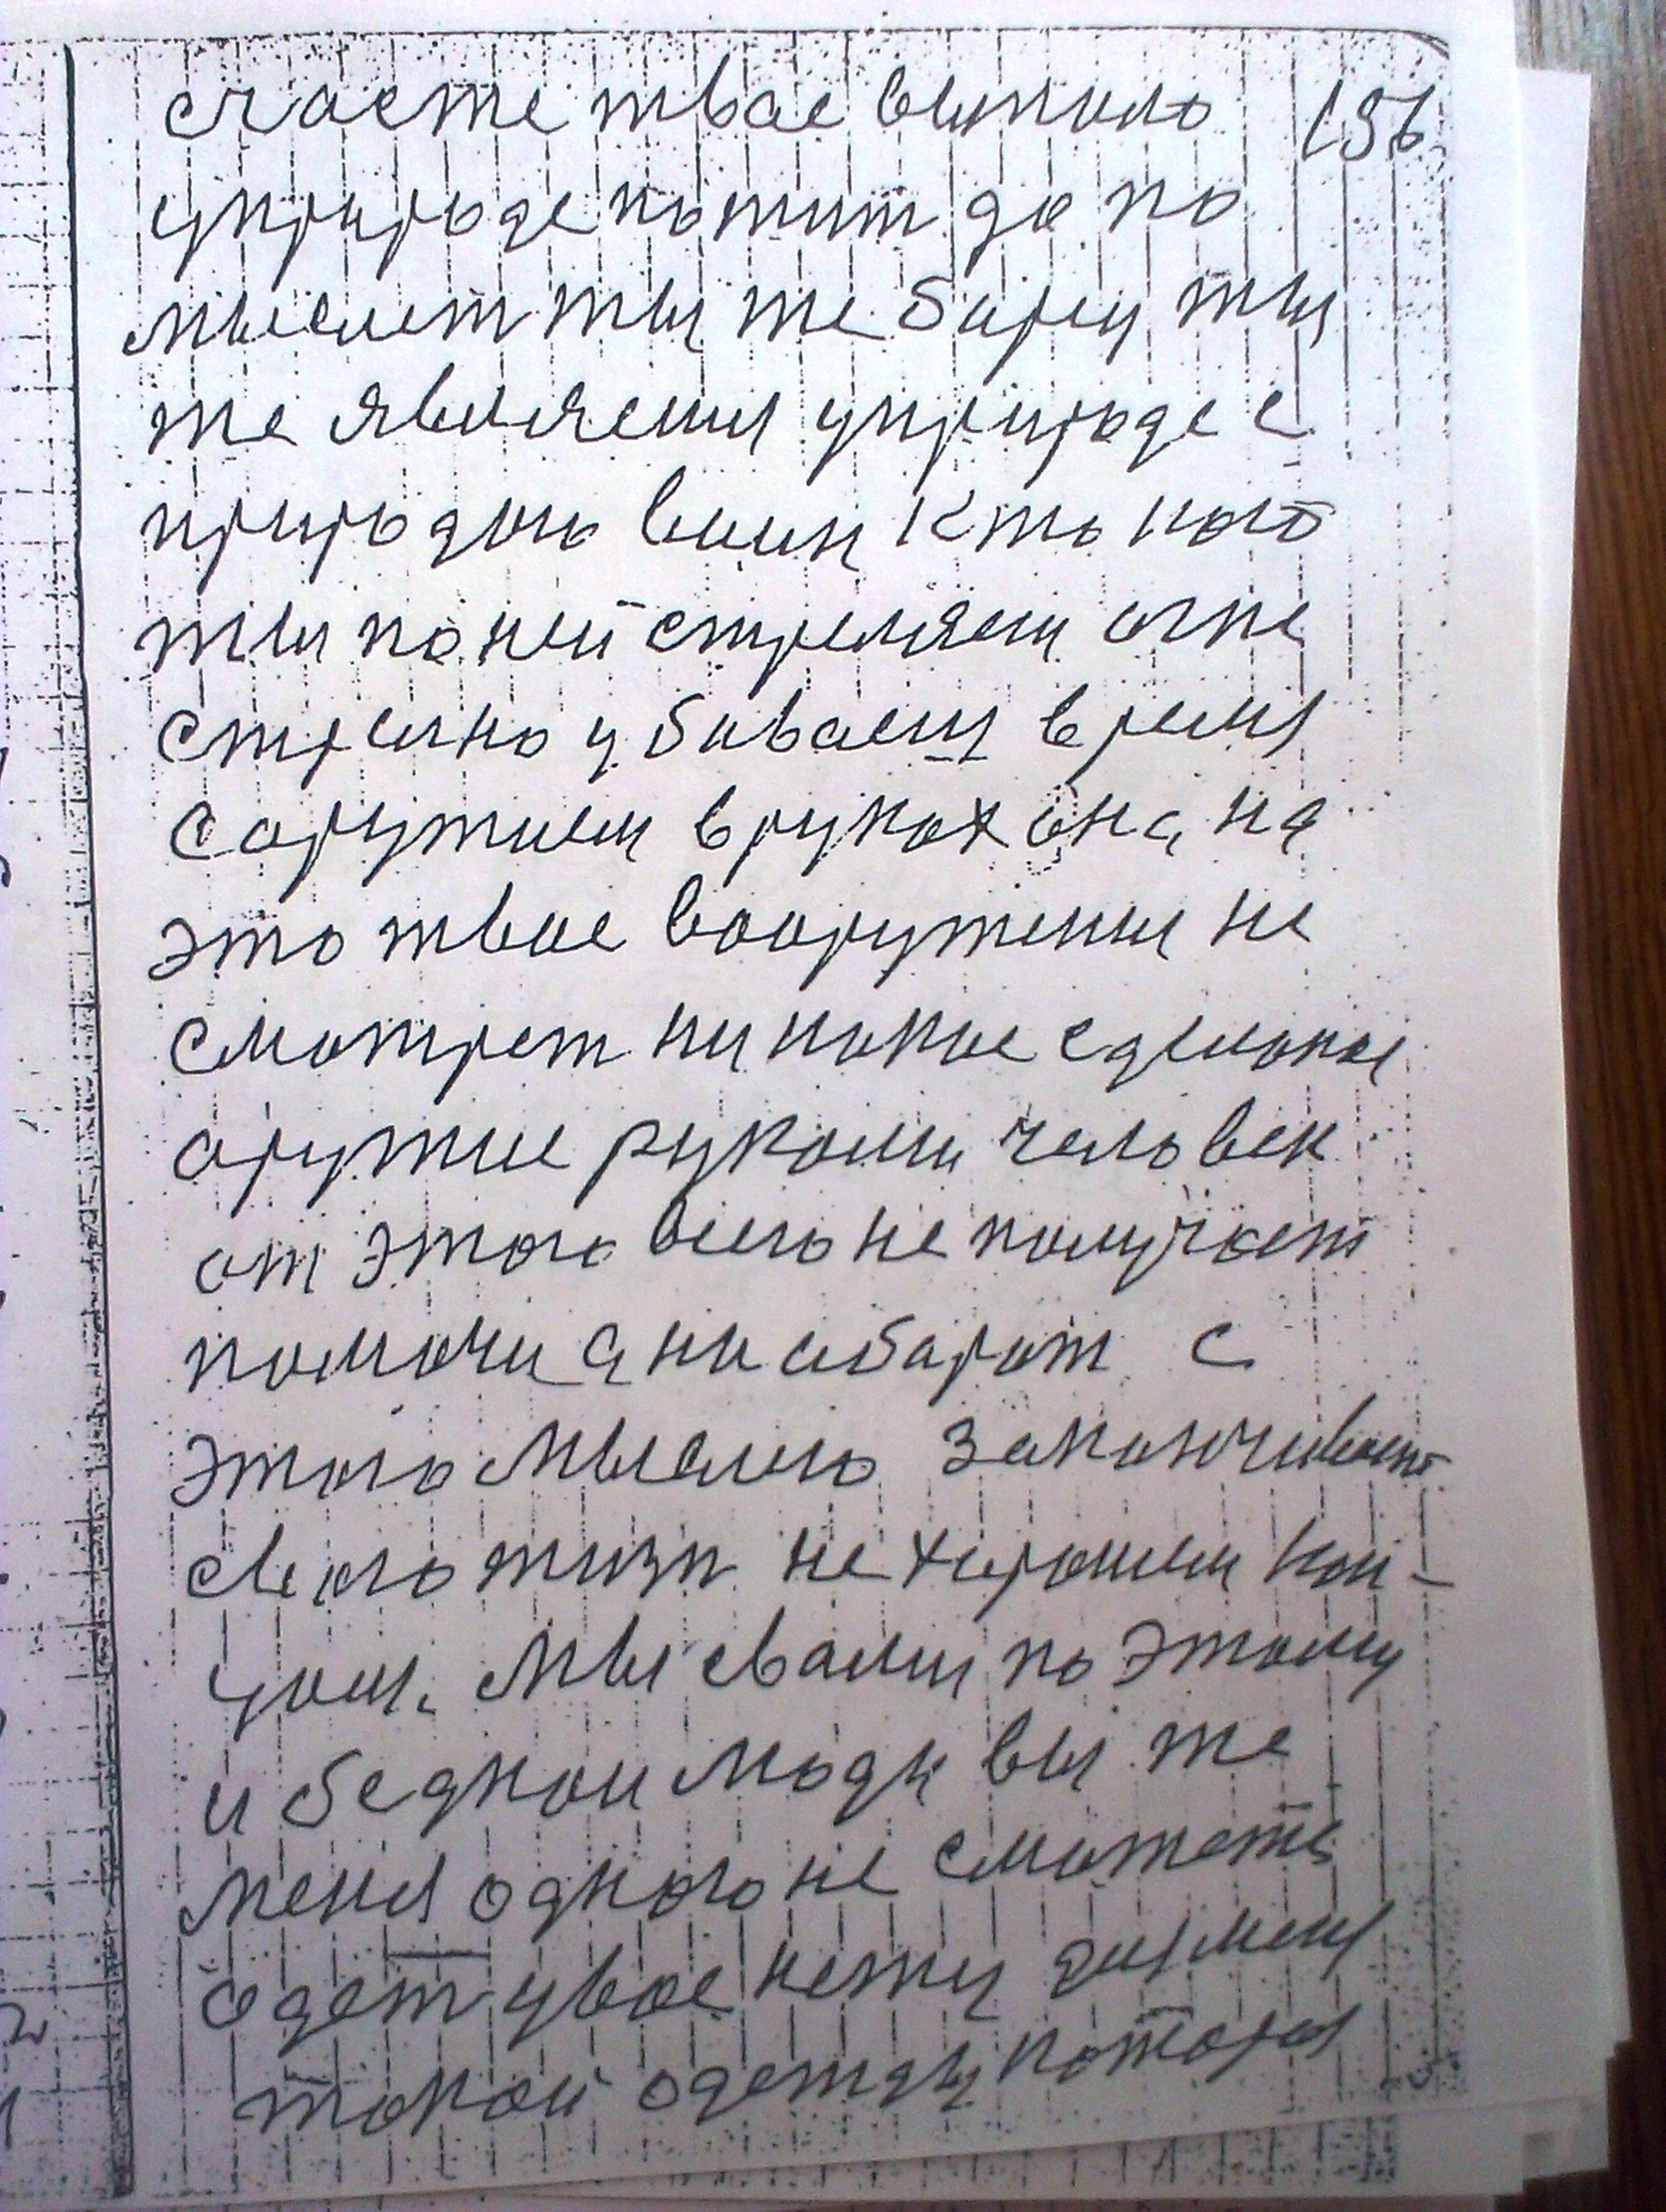 счасте твае выпало 156
уприроде котит да по
мыслет ты же бируты
же явлаяешя уприроде с
природою воин кто ково
ты по ней стреляеш огне
стрелно убиваеш время
саружием в руках она на
это твае вооружения не
смотрет ни какое сделаное
аружие руками человек
от этого всего не получает
помочи а ни абарот с
этого мыслею заканчивает
свою жизн не хирошем кон-
цом. Мы свами по этому
и бедном люди вы же
меня одного не сможете
одет увас нету для меня
такой одежды котора